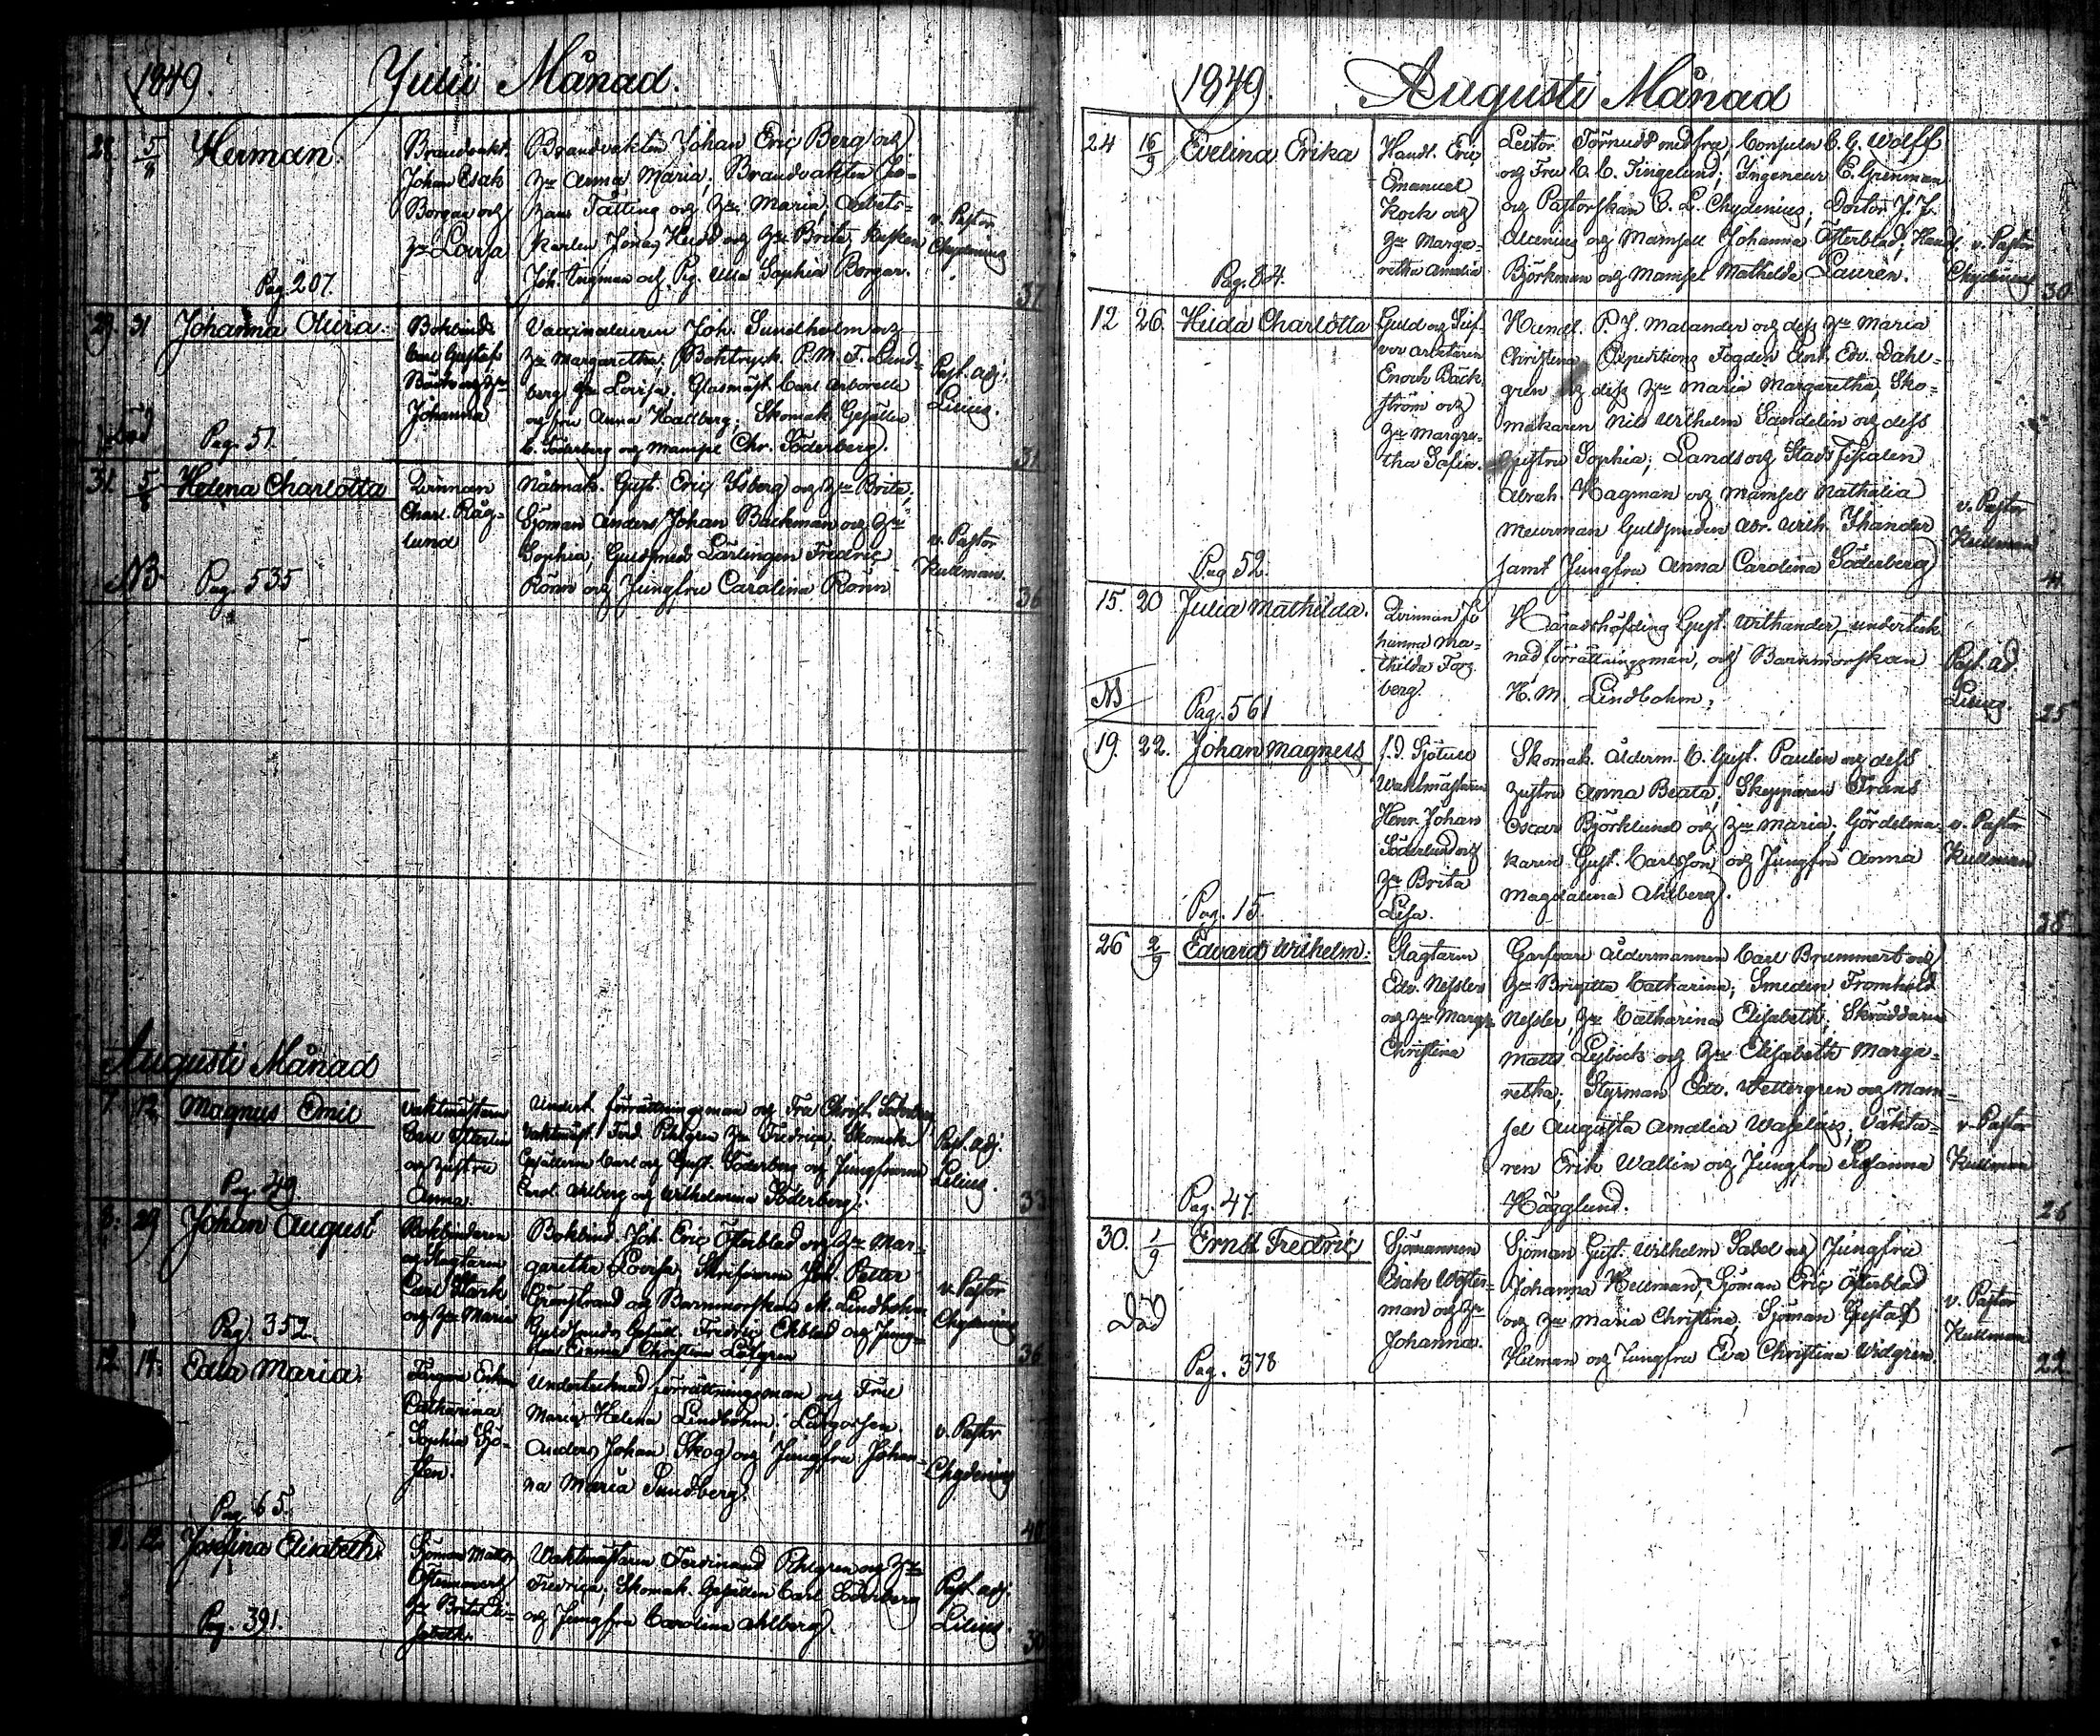 1849. Julii Månad.
28 5/8 Herman.
Brandvakt.
Johan Esak
Borgar och
Hu Lovisa
Brandvakten Johan Eric Berg och
Hu Anna Maria; Brandvakten
Tätting och Hu Maria, Arbets-
karlen Jonas och Hu Brita,
Joh. Ingman och Pig. Ulla Sophia Borgar.
v. Pastor
Chydenius
Pag. 207.
37
29. 31 Johanna Olivia.
Bokbind.
Carl Gustaf
Bäck och Hu
Johanna
Vaccinateuren Joh. Sundholm och
Hu Margaretha; Boktryck. P. M. T. Lund-
berg Hu Lovisa; Glasmäst. Carl Arborelle
och fru Anna Hallberg; Skomak. Gesällen
C. Söderberg och Mamsel Chr. Söderberg.
Past. adj.
Lilius.
död
Pag. 57.
31. 5/8 Helena Charlotta
Qvinnan
Charl. Räg-
lund
Gust. Eric Ysberg och Hu Brita;
Sjöman Anders Johan Backman och Hu
Sophia; Guldsmed Lärlingen Fredric
Rönn och Jungfru Carolina Rönn
v. Pastor
Kullman.
NB Pag. 535
36
Augusti Månad
7. 12. Magnus Emil
Vaktmästaren
Carl Österlin
och Hustru
Anna.
Undert. förrättningsman och Fru Christ. Söderberg
Vaktmäst. Ferd. Ahlgren Hu Fredrica; Skomak.
Gesällerne Carl och Gust. Söderberg och Jungfrurna
Carol. Ahlberg och Wilhelmina Söderberg.
Past. adj.
Lilius.
Pag. 49.
33
8. 29 Johan August
Bokbinderen
och
Carl Stark
och Hu Maria
Bokbind. Joh. Eric Österblad och Hu Mar-
garetha Lovisa; Skrifvaren Joh. Petter
Grönstrand och Barnmorskan M. Lindbohm
Guldsmeds Gesäll. Fredric Ekblad och Jung-
fru Emma Christina Löfgren
v. Pastor
Chydenius
Pag. 352.
36
12. 14. Edla Maria.
Enkan
Catharina
Sophia Sjö-
sten.
Undertecknad förrättningsman och Fru
Maria Helena Lindbohm;
Anders Johan Skog och Jungfru Johan-
na Maria Sundberg.
v. Pastor
Chydenius
Pag. 65.
40
12. Josefina Elisabeth.
Sjöman Matts
Österman och
Hu Brita Eli-
sabeth.
Waktmästaren Ferdinand Ahlgren och Hu
Fredrica; Skomak. Gesällen Carl Söderberg
och Jungfru Carolina Ahlberg.
Past. adj.
Lilius.
Pag. 391.
30
1849. Augusti Månad
24 16/9 Evelina Erika
Handl. Eric
Emanuel
Kock och
Hu Marga-
retha Amalia
Lector Törnudd med fru, Consuln C. G. Wolff
och Fru C. C. Tingelund; Ingenieur E. Grönman
och Pastorskan C. L. Chydenius; Doctor J. J.
Alcenius och Mamsell Johanna Österblad; Handl.
Björkman och Mamsel Mathilda Lauren.
v. Pastor
Chydenius
Pag. 84.
30
12 26. Hilda Charlotta
Guld och Silf-
ver arbetaren
Enoch Bäck-
ström och
Hu Margre-
tha Safir.
Handl. P. J. Malander och dess Hu Maria
Christina Expeditions Fogden Ant. Edv. Dahl-
gren och dess Hu Maria Margaretha, Sko-
makaren Nils Wilhelm Sandelin och dess
Hustru Sophia; Lands och Stads Fiskalen
Abrah. Hagman och Mamsell Nathalia
Meurman Guldsmeden Abr. Wilh. Thander
samt Jungfru Anna Carolina Söderberg
v. Pastor
Kullman
Pag 52.
41
15. 20 Julia Mathilda.
Qvinnan Jo
hanna Ma-
thilda Forg
berg.
Häradshöfding Gust. Wilhander, underteck
nad förrättningsman, och Barnmorskan
H. M. Lindbohm.
Past. ad
Lilius.
NB Pag. 561
25
19. 22. Johan Magnus
f.d. Sjötull
Waktmästaren
Henr. Johan
Söderlund och
Hu Brita
Lisa.
Skomak. Ålderm. C. Gust. Paulin och dess
Hustru Anna Beata; Skepparen Frans
Oscar Björklund och Hu Maria. Gördelma-
karen Gust. Carlsson och Jungfru Anna
Magdalena Ahlberg.
v. Pastor
Kullman
Pag. 15.
38
26 2/9 Edvard Wilhelm.
Slagtaren
Edv. Nessler
och Hu Margr.
Christina
Garfvare Åldermannen Carl Brummert och
Hu Brigitta Catharina; Smeden Fromhold
Nessler, Hu Catharina Elisabeth; Skräddaren
Matts Lybeck och Hu Elisabeth Marga-
retha; Styrman Edv. Wettergren och Mam-
sel Augusta Amalia Waselius; Väkta-
ren Erik Wallin och Jungfru Susanna
Hägglund.
v. Pastor
Kullman
Pag. 47.
26
30. 1/9 Ernst Fredric
Sjömannen
Esak Wester-
man och Hu
Johanna.
Sjöman Gust. Wilhelm Sabel och Jungfru
Johanna Hellman; Sjöman Eric Österblad
och Hu Maria Christina; Sjöman Gustaf
Helman och Jungfru Eva Christina Widgren.
v. Pastor
Kullman
Död
Pag. 378
22